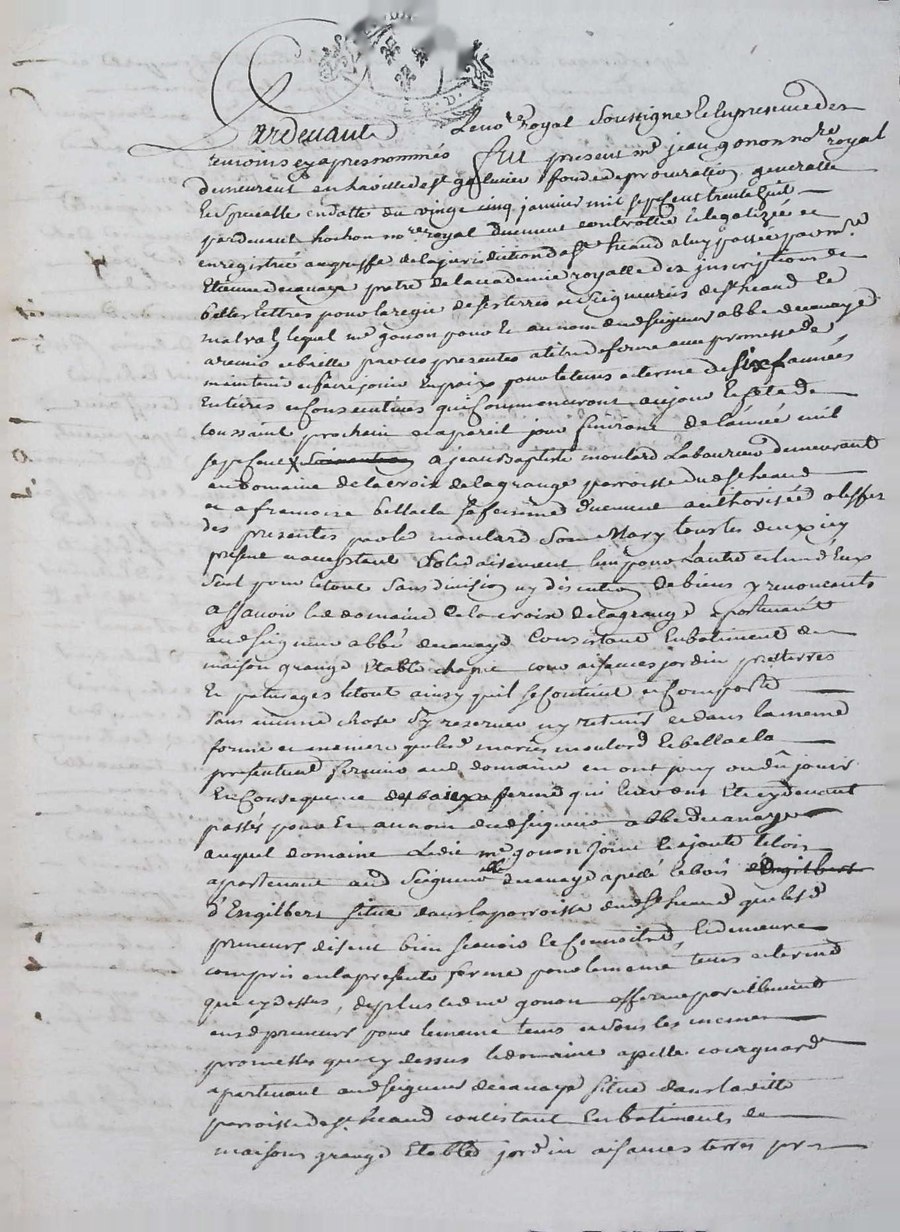 Pardevant Le no.re Royal Soussigné et en presence des
temoins cy apres nommés fut present m.e jean gonon no.re royal
demeurant en la ville de s.t galmier fondé de procuration generalle
et specialle en datte du vingt cinq janvier mil sept cent trente huit
pardevant hochon no.re royal duement controllée et legalizée et
enregistrée au greffe de la jurisdiction de s.t heand a luy passée par m.re
Etienne decanaye pretre de l'academie royalle des inscriptions et
belles lettres pour la regie de ses terres et seigneuries de s.t heand et
malval, lequel m.e gonon pour et au nom dud seigneur abbé decanaye
a remis et baillé par ces presentes a titre de ferme avec promesse de
maintenir et faire jouir en paix pour le tems et terme de six années
Entieres et Consecutives qui Commenceront au jour et feste de
toussaint prochain et a pareil jour finiront de l'année mil
sept cent a jean Baptiste moulard Laboureur demeurant
au domaine de la croix de la grange parroisse dud s.t heand
et a francoise bellacla sa femme duement authorisée a l'effet
des presentes par led moulard Son Mary tous les deux icy
presents et acceptant Solidairement l'un pour l'autre et l'un d'Eux
seul pour le tout sans division ny discution de biens y renoncants
a scavoir led domaine de la croix de la grange apartenant
aud seigneur abbé decanaye Consistant En batiment de
maison grange Etable chapit cour aisances jardin prés terres
Et paturages le tout ainsy qu'il se Contient et Comporte
sans aucune chose s'y reserver ny retenir et dans la meme
forme et maniere que les d mariés moulard et bellacla
presentement fermiers aud domaine en ont jouy ou dû jouir
En Consequence des baux a ferme qui leur ont Eté cy devant
passés pour et au nom dud seigneur abbé decanaye
auquel domaine Ledit m.e gonon joint et ajoute le bois
appartenant aud Seigneur abbé decanaye apellé le bois
d'Engilbert situé dans la parroisse dud s.t heand que les d
preneurs disent bien scavoir et Connoitre, et demeure
compris en la presente ferme pour le meme tems et terme
que cy dessus, de plus led m.e gonon afferme pareillement
aus d preneurs pour le meme tems et sous les memes
promesses que cy dessus le domaine apellé
apartenant aud seigneur decanaye situé dans la ditte
parroisse de s.t heand consistant En batiments de
maisons grange Etables jardin aisances terres prés